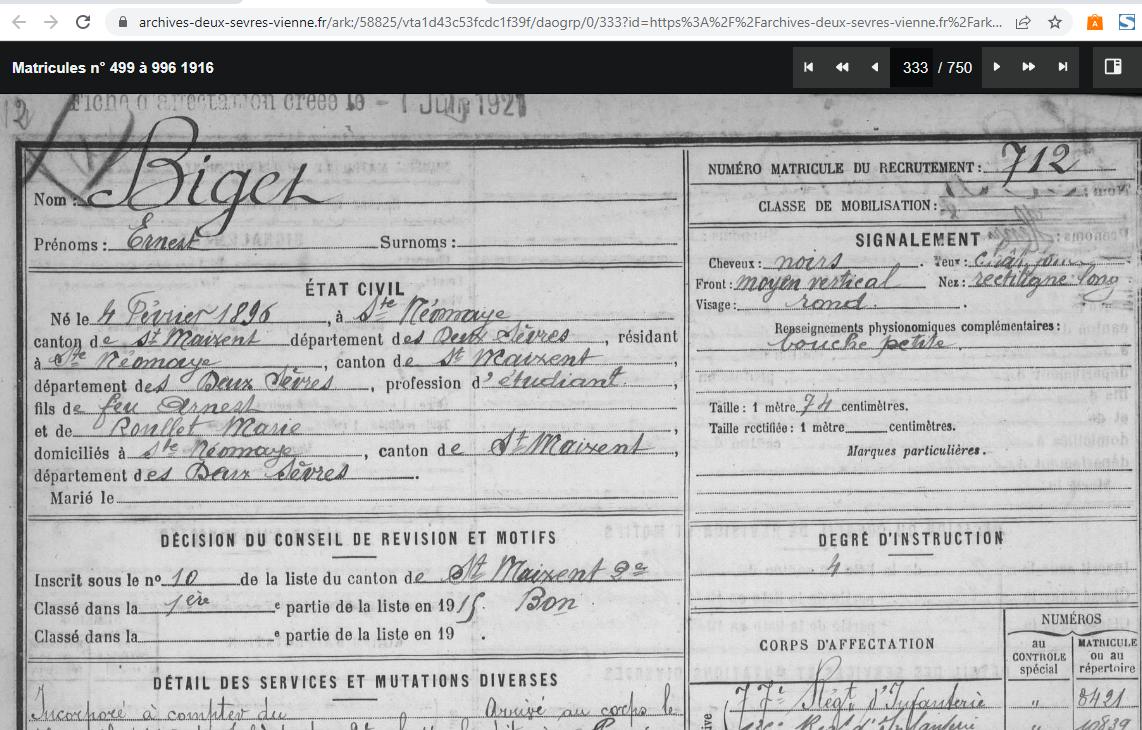 archives-deux-sevres-vienne.fr/ark:/58825/vta1d43c53fcdc1f39f/daogrp/0/333?id=https%3A%2F%2Farchives-deux-sevres-vienne.fr%2Fark...
Matricules n° 499 à 996 1916
333 / 750
Fiche d'affectation créée le - 1 Juin 192
Nom : Biget
Prénoms : Ernest Surnoms :
ÉTAT CIVIL
Né le 4 Février 1896, à Ste Néomaye
canton de St Maixent département des Deux Sèvres, résidant
à Ste Néomaye, canton de St Maixent
département des Deux Sèvres, profession d'étudiant,
fils de feu Ernest
et de Roullet Marie,
domiciliés à Ste Néomaye, canton de St Maixent,
département des Deux Sèvres.
Marié le
DÉCISION DU CONSEIL DE REVISION ET MOTIFS
Inscrit sous le no 10 de la liste du canton de St Maixent 2e
Classé dans la 1ère e partie de la liste en 1915. Bon
Classé dans la e partie de la liste en 19 .
DÉTAIL DES SERVICES ET MUTATIONS DIVERSES
Incorporé à compter du Arrivé au corps le
NUMÉRO MATRICULE DU RECRUTEMENT : 712
CLASSE DE MOBILISATION :
SIGNALEMENT
Cheveux : noirs. Yeux :
Front : moyen vertical Nez : rectiligne long
Visage : rond.
Renseignements physionomiques complémentaires :
bouche petite.
Taille : 1 mètre 74 centimètres.
Taille rectifiée : 1 mètre centimètres.
Marques particulières.
DEGRÉ D'INSTRUCTION
4
CORPS D'AFFECTATION
NUMÉROS
au CONTROLE spécial
MATRICULE ou au répertoire
77e Régt d'Infanterie " 8421
d'Infanterie " 10839